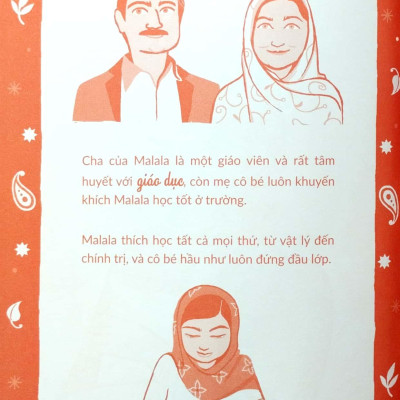 Cha của Malala là một giáo viên và rất tâm
huyết với giáo dục, còn mẹ cô bé luôn khuyến
khích Malala học tốt ở trường.
Malala thích học tất cả mọi thứ, từ vật lý đến
chính trị, và cô bé hầu như luôn đứng đầu lớp.